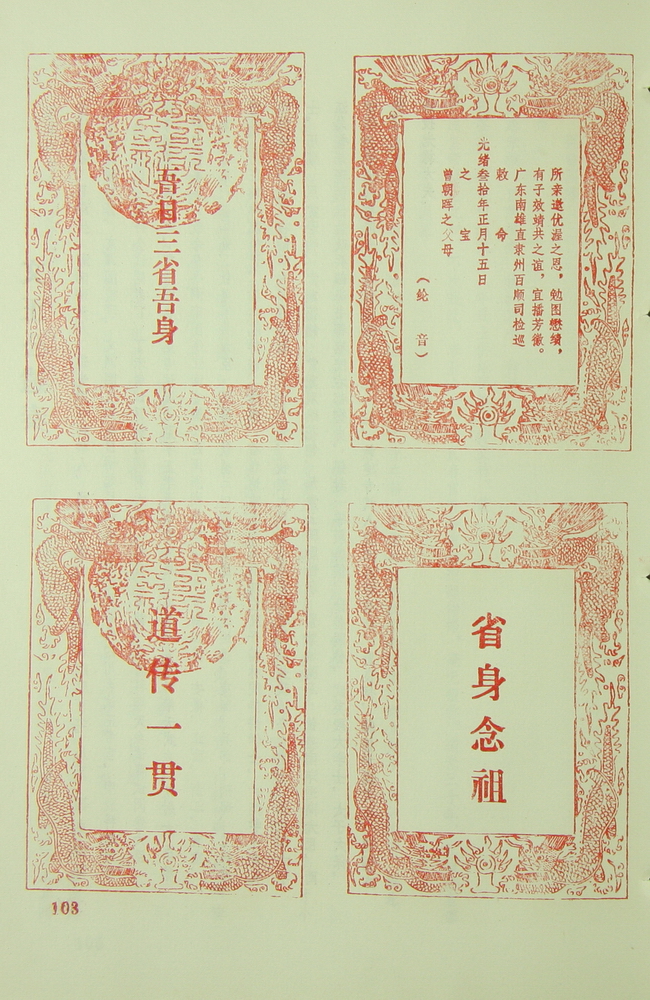 所亲邀优渥之恩，勉图懋绩，
有子效靖共之谊，宜播芳徽。
广东南雄直隶州百顺司检巡
敕命
光绪叁拾年正月十五日
之宝
曾朝晖之父母
（纶音）
吾日三省吾身
省身念祖
道传一贯
103